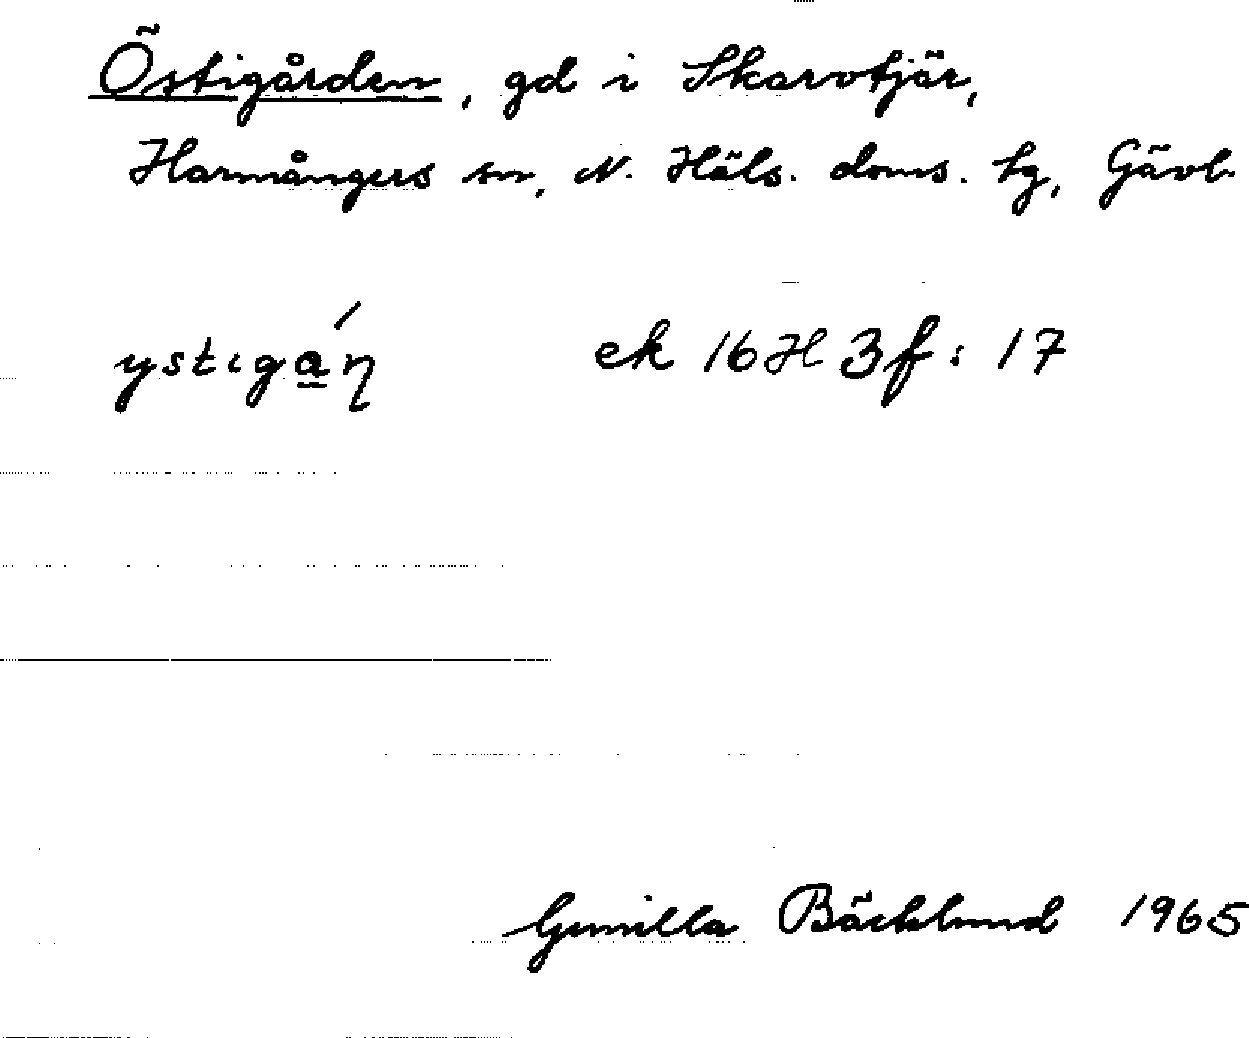 Östigården, gd i Skarvtjär,
Harmångers sn, N. Häls. doms. hg, Gävl.
ystıgá̲ŋ ek 16H3f: 17
Gunilla Bäcklund 1965